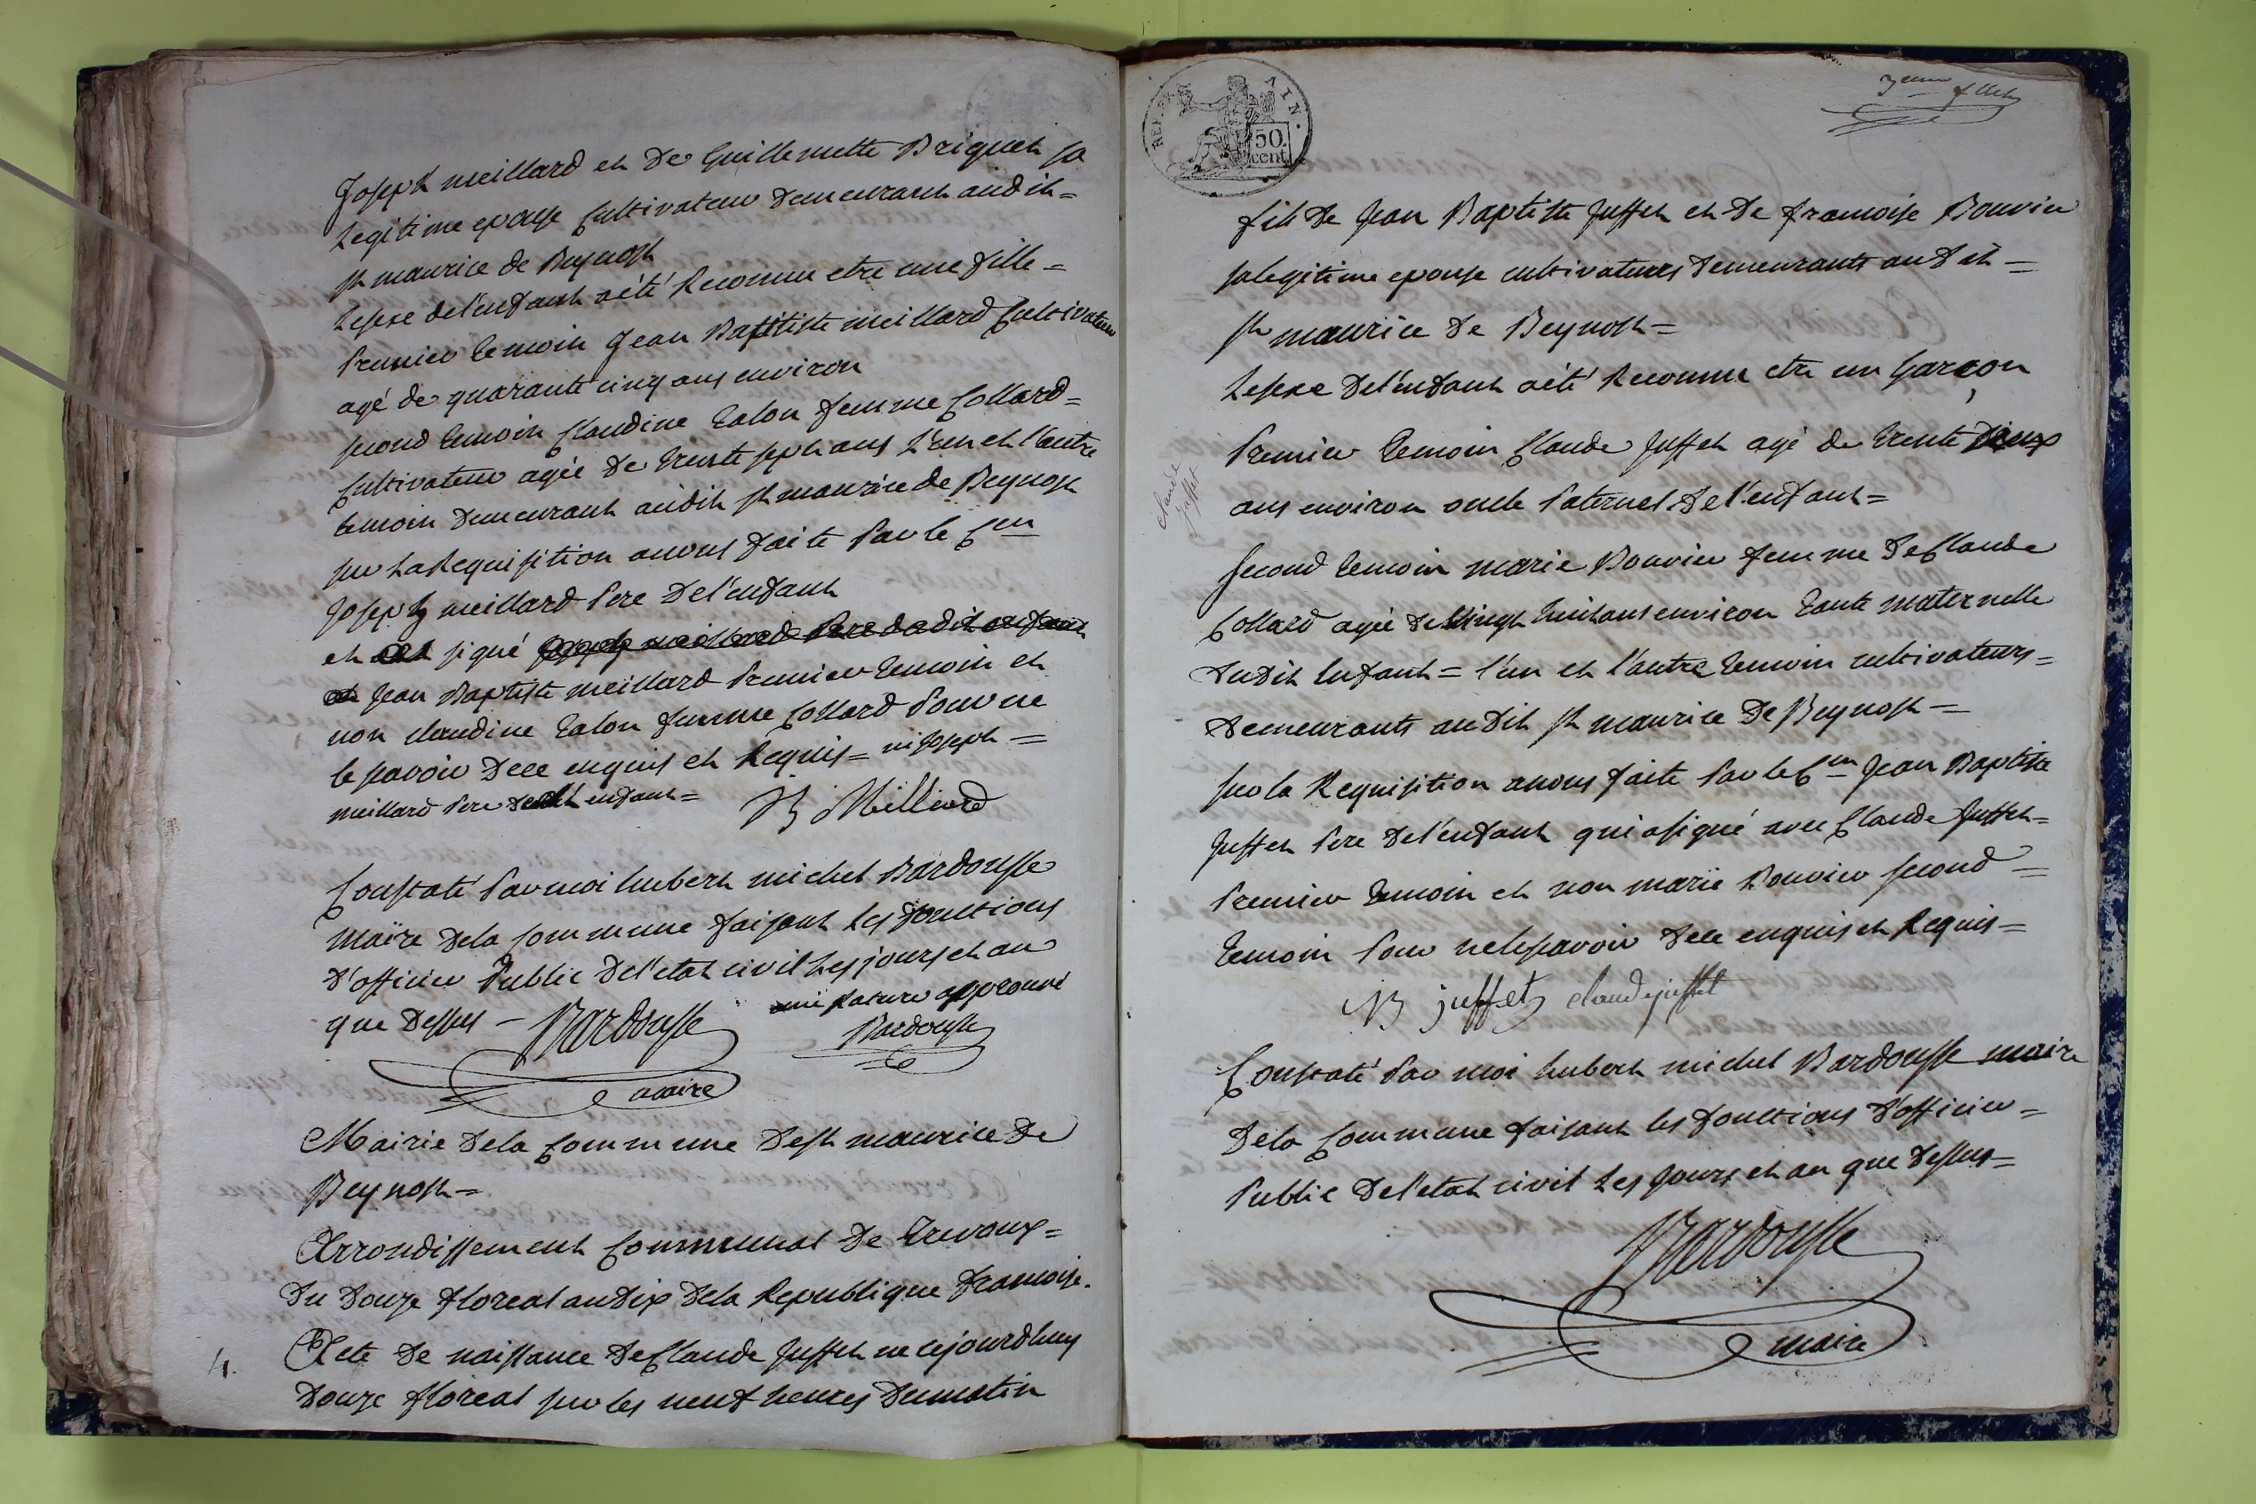 Joseph meillard et De Guillemette Briquet sa
Legitime epouse Cultivateur Demeurant audit =
st maurice de Beynost
Le sexe de l'enfant a été Reconnu etre une fille =
Premier temoin Jean Baptiste meillard Cultivateur
agé de quarante cinq ans environ
second temoin Claudine Talon femme Collard =
Cultivateur agée De trente sept ans L'un et l'autre
temoin Demeurant audit st maurice de Beynost
sur La Requisition a nous faite Par le Cen
Joseph meillard Pere De l'enfant
et signé Joseph meillard Pere dudit enfant
et Jean Baptiste meillard Premier temoin et
non claudine Talon femme Collard Pour ne
le savoir De ce enquis et Requis = ni Joseph =
meillard Pere De enfant =
JB Milliard
Constaté Par moi hubert michel Bardousse
Maire De la Commune faisant Les fonctions
D'officier Public De l'etat civil Les jours et an
que Dessus - Bardousse
maire
rature approuvé
Bardousse
Mairie De la Commune De st maurice De
Beynost =
Arrondissement Communal De Trevoux =
Du Douze floreal an Dix De la Republique francoise.
4. Acte De naissance De Claude Juffet ne cejourdhuy
Douze floreal sur les neuf heures Du matin
REP. FRA
IN.
50.
cent.
3eme
fils De Jean Baptiste Juffet et De francoise Bouvier
sa legitime epouse cultivateurs Demeurants audit =
st maurice De Beynost =
Le sexe De l'enfant a été Reconnu etre un Garçon
Premier temoin Claude Juffet agé de trente Deux
ans environ oncle Paternel De l'enfant =
claude
Juffet
second temoin marie Bouvier femme De Claude
Collard agée De vingt huit ans environ tante maternelle
Dudit Enfant = l'un et l'autre temoin cultivateurs =
Demeurants audit st maurice De Beynost =
sur la Requisition a nous faite Par le Cen Jean Baptiste
Juffet Pere De l'enfant qui a signé avec Claude Juffet =
Premier temoin et non marie Bouvier second =
temoin Pour ne le savoir De ce enquis et Requis =
JB juffet claude juffet
Constaté Par moi hubert michel Bardousse maire
De la Commune faisant les fonctions D'officier =
Public De l'etat civil Les Jours et an que Dessus =
Bardousse
maire